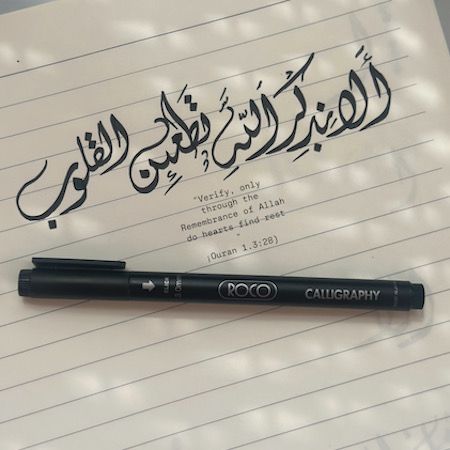 أَلا بِذِكْرِ اللَّهِ تَطْمَئِن القلوب
"Verify, only
through the
Remembrance of Allah
do hearts find rest
"
¡Ouran 1.3:28)
BLACK 3.0mm ROCO CALLIGRAPHY